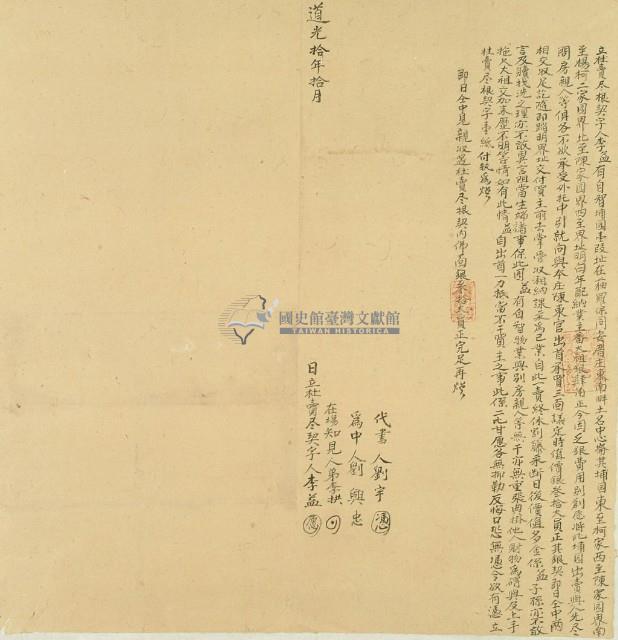 立杜賣尽根契字人李益有自置埔園壹段址在一𦰡羅保同安厝庄東南畔土名中崙其埔園東至柯家西至陳家園界南
至楊柯二家園界北至陳家園界四至界址明白年配納業主番大租銀肆角正今因乏銀費用別創愿將此埔園出賣與人先尽
問房親人等俱各不欲承受外托中引就向與本庄陳東官出首承買三面議定時值價銀叁拾大員正其銀契即日仝中兩
相交收足訖隨即踏明界址交付買主前去掌管收租納課永為己業自此一賣終休割籐永断日後價值多金保益子孫亦不敢
言及贖找洗之理亦不敢異言阻當生端滋事保此園益有自置物業與別房親人等無干亦無重張典掛他人財物為碍與及上手
拖欠大租交加来歷不明等情如有此情益自出首一力抵當不干買主之事此係二比甘愿各無抑勒反悔口恐無憑今欲有憑立
杜賣尽根契字壹紙付執為炤
即日仝中見親收過杜賣尽根契內佛面銀叁拾大員正完足再炤
代書人劉宇
為中人劉興忠
在場知見人弟李拱
道光拾年拾月
日立杜賣尽契字人李益
國史館臺灣文獻館
TAIWAN HISTORICA